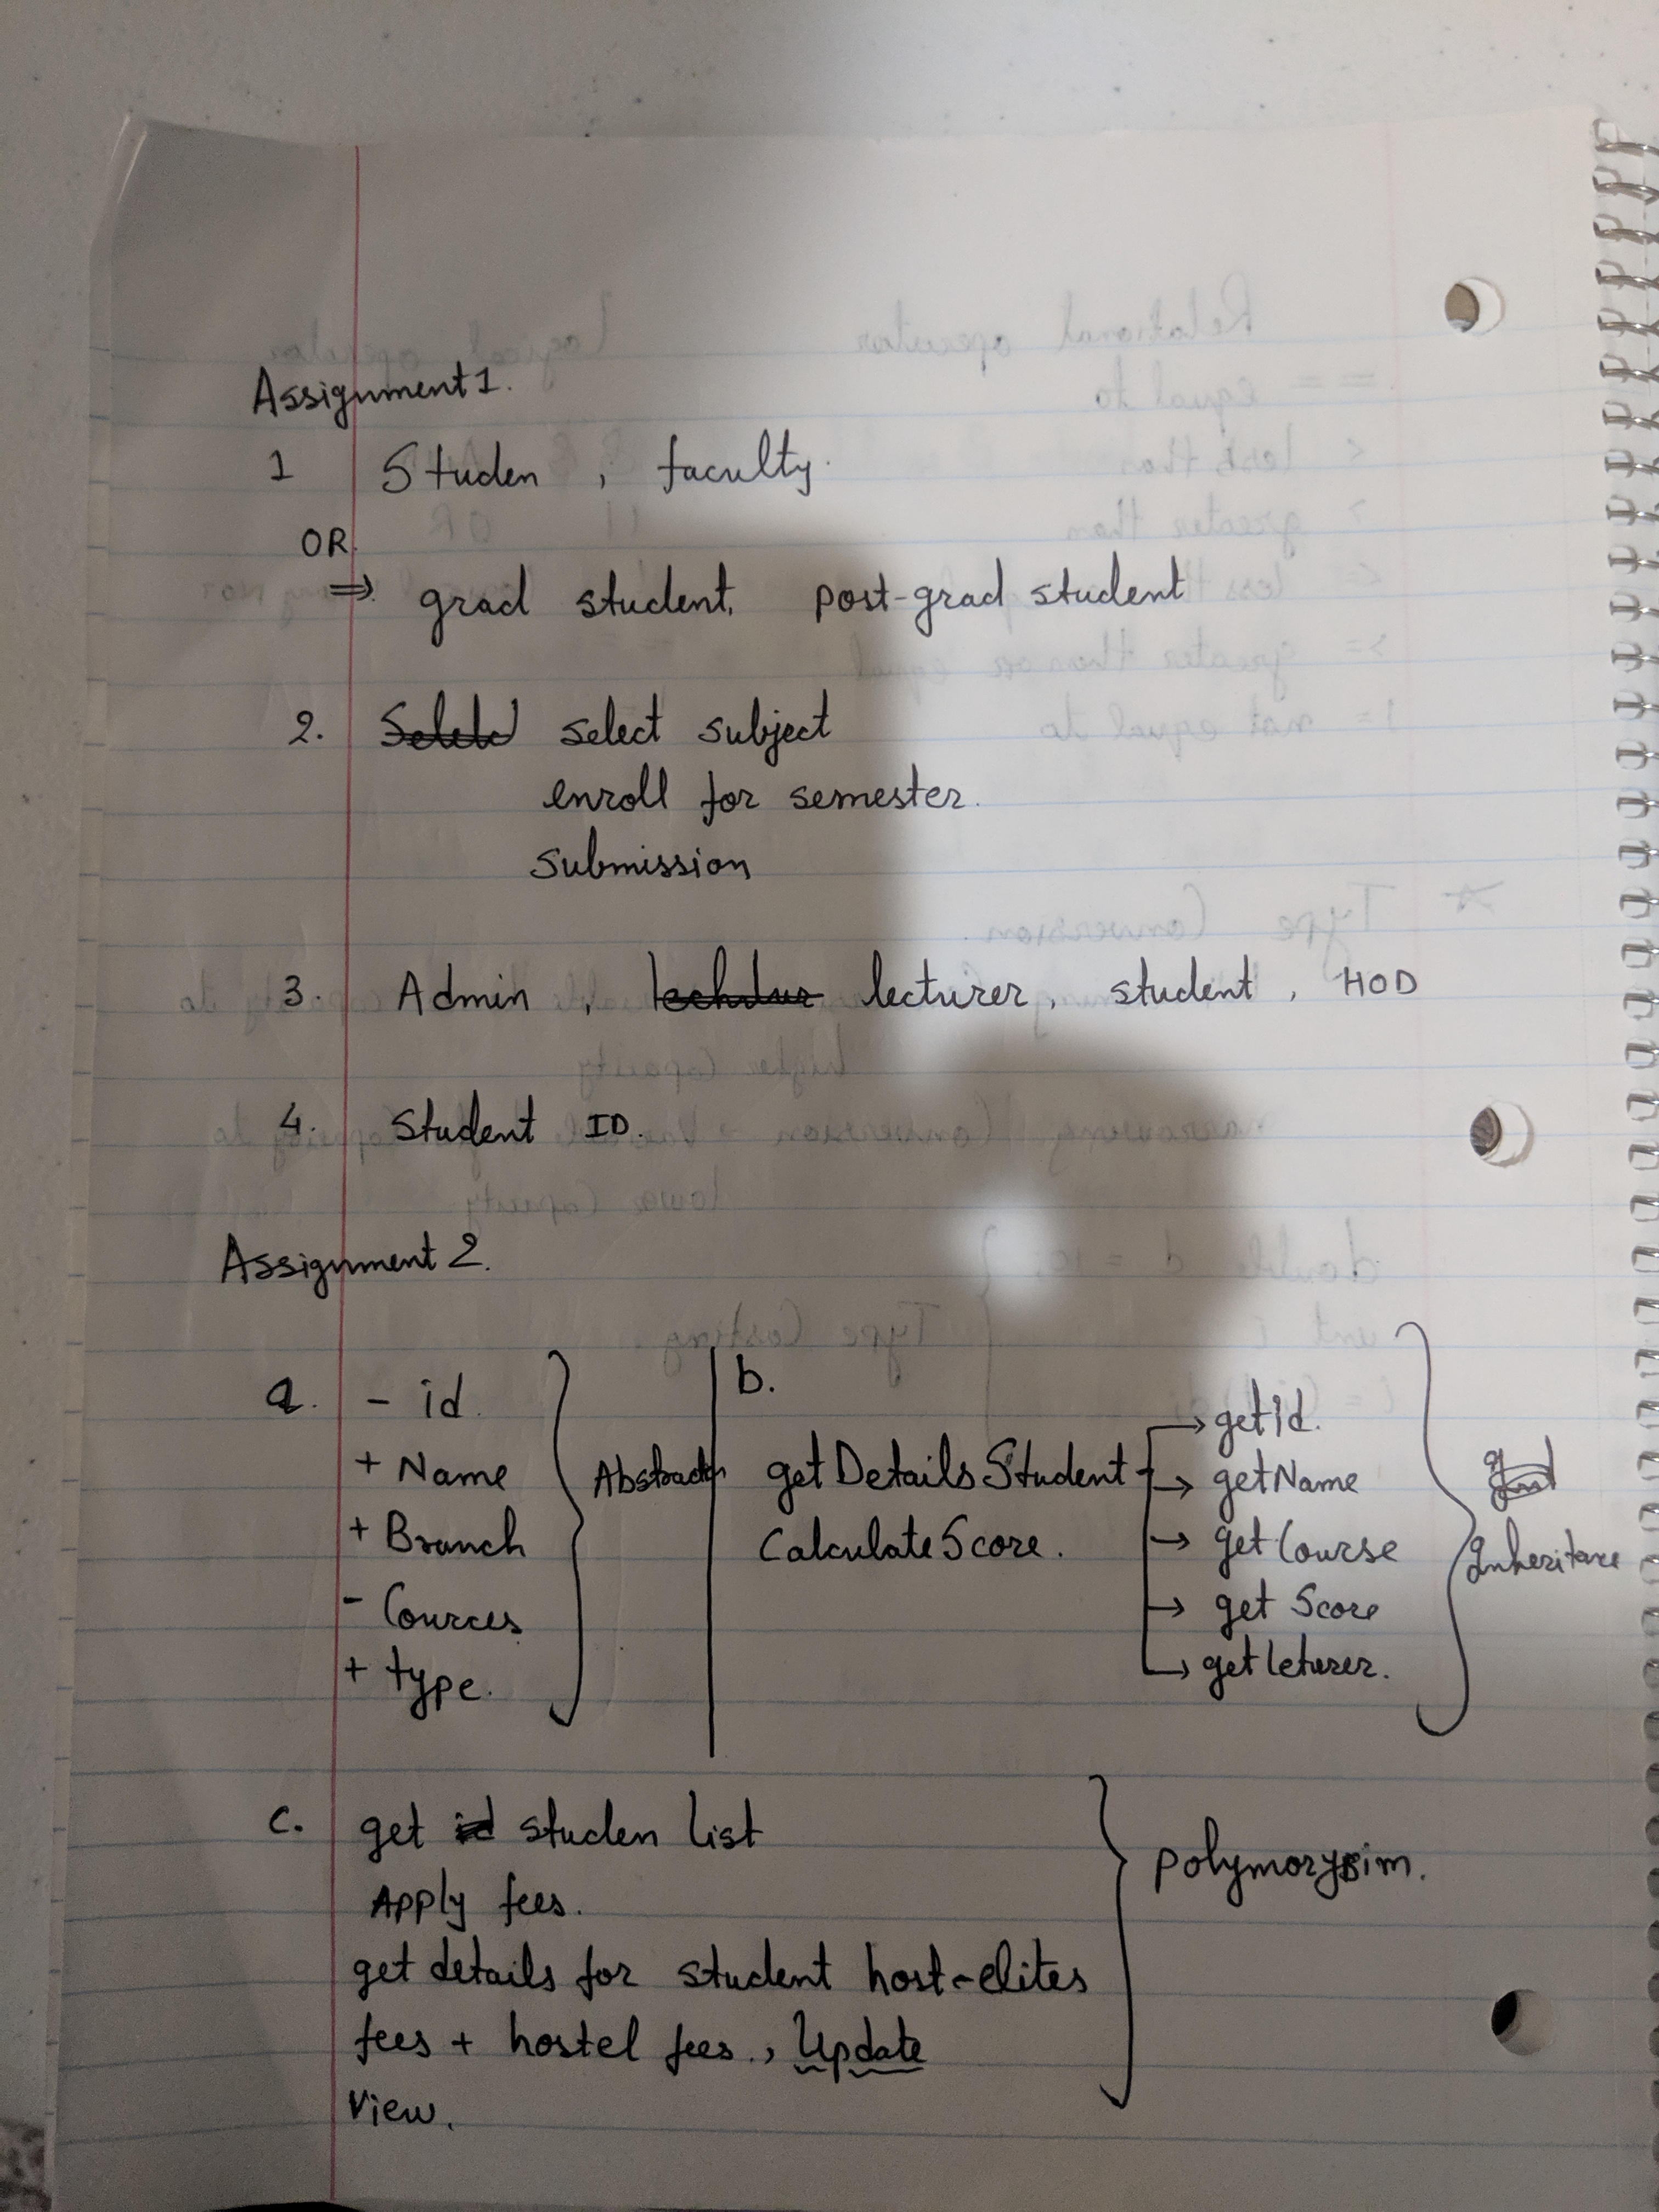 Assignment 1.
1 Studen , faculty.
OR
⇒ grad student, post-grad student
2. select subject
enroll for semester.
Submission
3. Admin , lecturer, student , HOD
4. Student ID.
Assignment 2.
a. - id.
+ Name
+ Branch
- Cources
+ type.
Abstract
b.
getDetailsStudent
CalculateScore.
→ getId.
→ getName
→ getCourse
→ get Score
→ getleturer.
Inheritance
c. get studen list
Apply fees.
get details for student host-elites
fees + hostel fees., Update
View.
polymorysim.